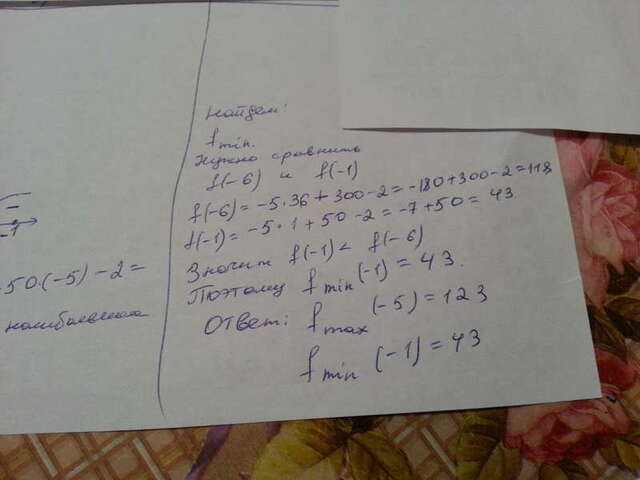 -1
50·(-5) -2=
наибольшего
Найдем:
f min.
Нужно сравнить
f(-6) и f(-1)
f(-6) = -5·36 + 300-2 = -180+300-2 = 118
f(-1) = -5·1 + 50 -2 = -7 +50 = 43
Значит f(-1) < f(-6)
Поэтому f min (-1) = 43.
Ответ: f max (-5) = 123
f min (-1) = 43